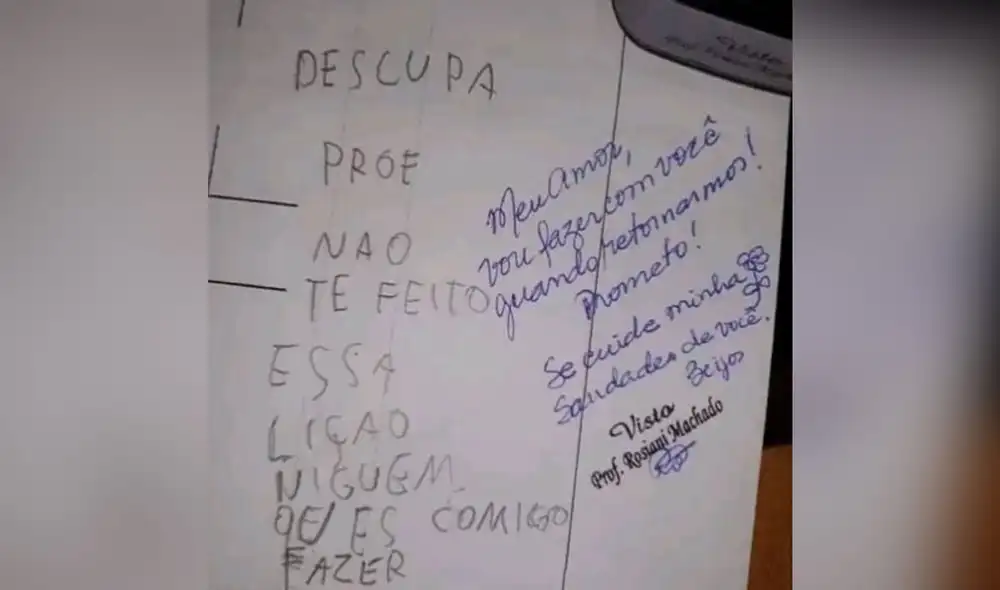 DESCUPA
PROE
NAO
TE FEITO
ESSA
LIÇAO
NIGUEM
QE/ ES COMIGO
FAZER
Meu Amor,
vou fazer com você
quando retornarmos!
Prometo!
Se cuide minha
Saudades de você.
Beijos
Visto
Prof. Rosiani Machado
Visto